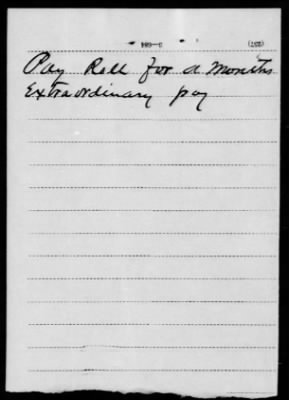 (257)
Pay Roll for a Months
Extraordinary pay